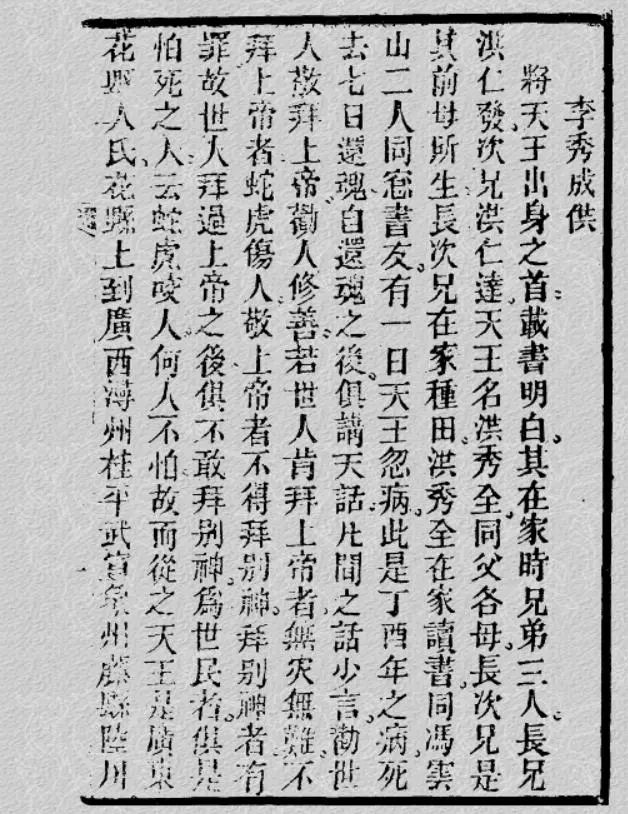 李秀成供
將天王出身之首載書明白其在家時兄弟三人長兄
洪仁發次兄洪仁達天王名洪秀全同父各母長次兄是
其前母所生長次兄在家種田洪秀全在家讀書同馮雲
山二人同窓書友有一日天王忽病此是丁酉年之病死
去七日還魂自還魂之後俱講天話凡間之話少言勸世
人敬拜上帝勸人修善若世人肯拜上帝者無灾無難不
拜上帝者蛇虎傷人敬上帝者不得拜別神拜別神者有
罪故世人拜過上帝之後俱不敢拜別神爲世民者俱是
怕死之人云蛇虎咬人何人不怕故而從之天王是廣東
花縣人氏花縣上到廣西潯州桂平武宣象州藤縣陸川